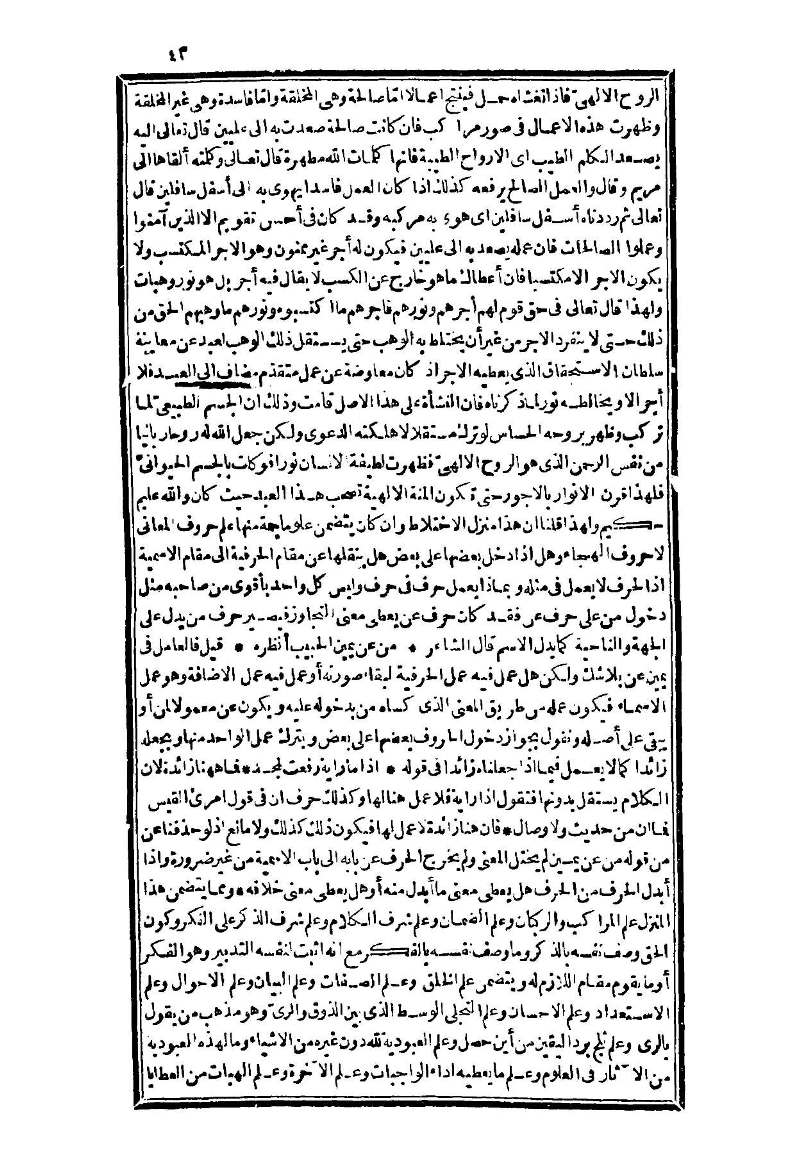 ٤٣
الروح الالهىّ فاذا تغشاه حمل فينتج اعمالا امّا صالحة وهى المخلقة وامّا فاسدة وهى غير المخلقة
وظهرت هذه الاعمال فى صور مراكب فان كانت صالحة صعدت به الى عليين قال تعالى اليه
يصعد الكلم الطيب اى الارواح الطيبة فانها كلمات الله مطهرة قال تعالى وكلمته ألقاها الى
مريم وقال والعمل الصالح يرفعه كذلك اذا كان العمل فاسدا يهوى به الى أسفل سافلين قال
تعالى ثم رددناه أسفل سافلين اى هوى به مركبه وقد كان فى أحسن تقويم الا الذين آمنوا
وعملوا الصالحات فان عمله يصعد به الى عليين فيكون له أجر غير ممنون وهو الاجر المكتسب ولا
يكون الاجر الا مكتسبا فان أعطاك ما هو خارج عن الكسب لا يقال فيه أجر بل هو نور وهبات
ولهذا قال تعالى فى حق قوم لهم أجرهم ونورهم فاجرهم ما اكتسبوه ونورهم ما وهبهم الحق من
ذلك حتى لا ينفرد الاجر من غير أن يختلط به الوهب حتى يستقل ذلك الوهب لعبد عن معاينة
سلطان الاستحقاق الذى يعطيه الاجر اذ كان معاوضة عن عمل متقدّم مضاف الى العبد فلا
أجر الا ويخالطه نور لما ذكرناه فان النشأة على هذا الاصل قامت وذلك ان الجسم الطبيعى لما
تركب وظهر بروحه الحساس لو ترك مستقلا لاهلكته الدعوى ولكن جعل الله له روحا ربانيا
من نفس الرحمن الذى هو الروح الالهىّ فظهرت لطيفة الانسان نورا فوكات بالجسم الحيوانىّ
فلهذا قرن الانوار بالاجور حتى تكون المنة الالهية تصحب هذا العبد حيث كان والله عليم
حكيم ولهذا قلنا ان هذا منزل الاختلاط وان كان يتضمن علوما جمة منها علم حروف المعانى
لا حروف الهجاء وهل اذا دخل بعضها على بعض هل ينقلها عن مقام الحرفية الى مقام الاسمية
اذ الحرف لا يعمل فى مثله وبماذا يعمل حرف فى حرف وليس كل واحد بأقوى من صاحبه مثل
دخول من على حرف عن فقد كان حرف عن يعطى معنى التجاوز فيصير حرف من يدل على
الجهة والناحية كما يدل الاسم قال الشاعر * من عن يمين الحبيب أنظره * قيل فالعامل فى
يمين عن بلا شك ولكن هل عمل فيه عمل الحرفية لبقاء صورته أو عمل فيه عمل الاضافة وهو عمل
الاسماء فيكون عمله من طريق المعنى الذى كساه من بدخوله عليه ويكون عن معمولا لمن أو
يبقى على أصله ونقول بجواز دخول الحروف بعضها على بعض ويترك عمل الواحد منها ويجعله
زائدا كما لا يعمل فيما اذا جعلناه زائدا فى قوله * اذا ما راية رفعت لمجد * فما ههنا زائدة لان
الكلام يستقل بدونها فنقول اذا راية فلا عمل هنا لها وكذلك حرف ان فى قول امرئ القيس
فما ان من حديث ولا وصال * فان هنا زائدة لا عمل لها فيكون ذلك كذلك ولا مانع اذ لو حذفنا عن
من قوله من عن يمين لم يختل المعنى ولم يخرج الحرف عن بابه الى باب الاسمية من غير ضرورة واذا
أبدل الحرف من الحرف هل يعطى معنى ما أبدل منه أو هل يعطى معنى خلافه * ومما يتضمن هذا
المنزل علم المراكب والركبان وعلم الضمان وعلم شرف الكلام وعلم شرف الذكر على الفكر وكون
الحق وصف نفسه بالذكر وما وصف نفسه بالفكر مع انه اثبت لنفسه التدبير وهو الفكر
أو ما يقوم مقام اللازم له ويتضمن علم الخلق وعلم الصفات وعلم البيان وعلم الاحوال وعلم
الاستعداد وعلم الاحسان وعلم التجلى الوسط الذى بين الذوق والرىّ وهو مذهب من يقول
بالرى وعلم ثلج برد اليقين من أين حصل وعلم العبودية لله دون غيره من الاشياء وما لهذه العبودية
من الآثار فى العلوم وعلم ما يعطيه اداء الواجبات وعلم الآخرة وعلم الهبات من العطايا